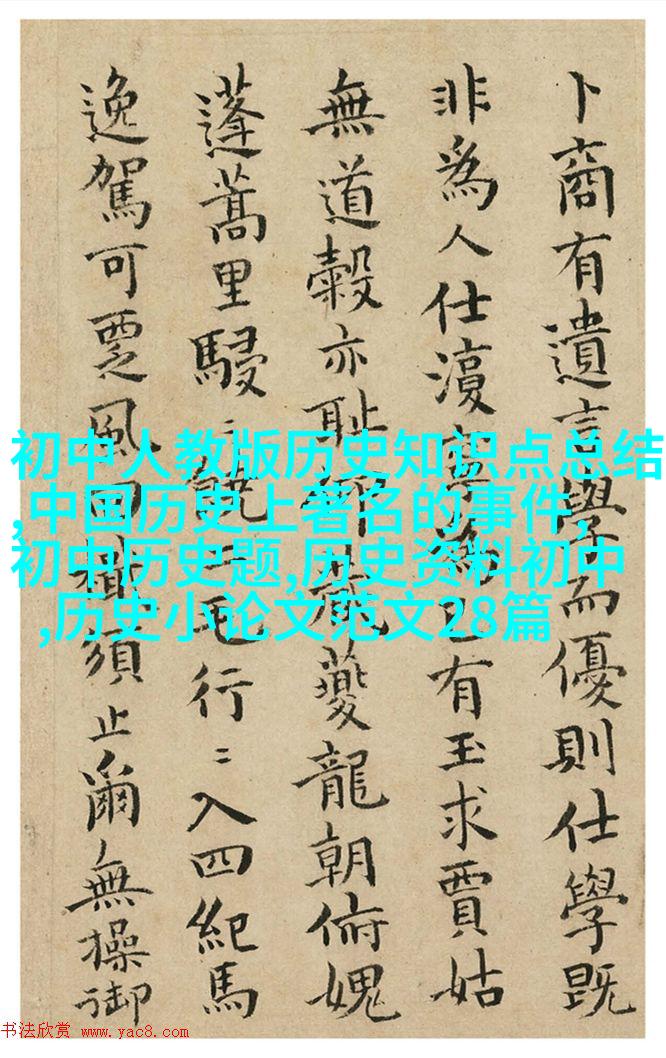 卜商有遺言學而優則仕學既
非爲人仕學為已有玉求賈姑
無道穀亦恥夔龍朝俯媿
蓬蒿里駸二毛行入四紀馬
逸駕可覂風須止爾無操御
初中人教版历史知识点总结
,中国历史上著名的事件,
初中历史题,历史资料初中
,历史小论文范文28篇
书法欣赏 www.yac8.com